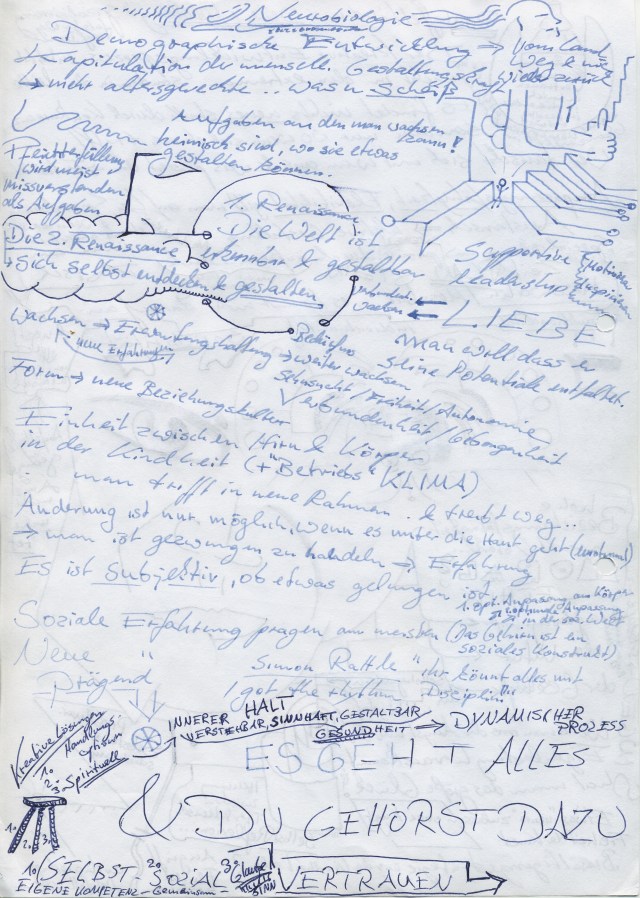 Neurobiologie
Demographische Entwicklung → vom Land weg &
Kapitulation der menschl. Gestaltungskraft wieder zurück
↳ nicht altersgerechte .. was n Scheiß
Aufgaben an den man wachsen kann!
heimisch sind, wo sie etwas
gestalten können.
Pflichterfüllung
wird meist
missverstanden
als Aufgaben
1. Renaissance
Die Welt ist
erkennbar & gestaltbar
Die 2. Renaissance
sich selbst entdecken & gestalten
Supportive
Leadership
verbunden ←
wachsen ←
LIEBE
man will dass er
seine Potentiale entfaltet.
Wachsen → Erwartungshaltung → weiter wachsen
neue Erfahrung
Sehnsucht/Freiheit/Autonomie
Verbundenheit/Geborgenheit
Form → neue Beziehungskultur
Einheit zwischen Hirn & Körper
in der Kindheit (+"Betriebs"KLIMA)
man trifft in neue Rahmen & treibt weg..
Änderung ist nur möglich, wenn es unter die Haut geht (emotional)
→ man ist gezwungen zu handeln → Erfahrung
Es ist subjektiv, ob etwas gelungen ist
1. opt. Anpassung am Körper
Anpassung
in der soz. Welt
Soziale Erfahrung prägen am meisten (Das Gehirn ist ein
soziales Konstrukt)
Neue "
Prägend
Simon Rattle "ihr könnt alles mit
I got the rhythm Disciplin"
Kreative Lösungen
1. Handlungs
2.
3. Spirituell
INNERER HALT
VERSTEHBAR, SINNHAFT, GESTALTBAR
GESUNDHEIT → DYNAMISCHER
PROZESS
ES GEHT ALLES
& DU GEHÖRST DAZU
1. 2. 3.
1. SELBST- 2. SOZIAL 3. Glaube
EIGENE KOMPETENZ - Gemeinsam SINN
VERTRAUEN